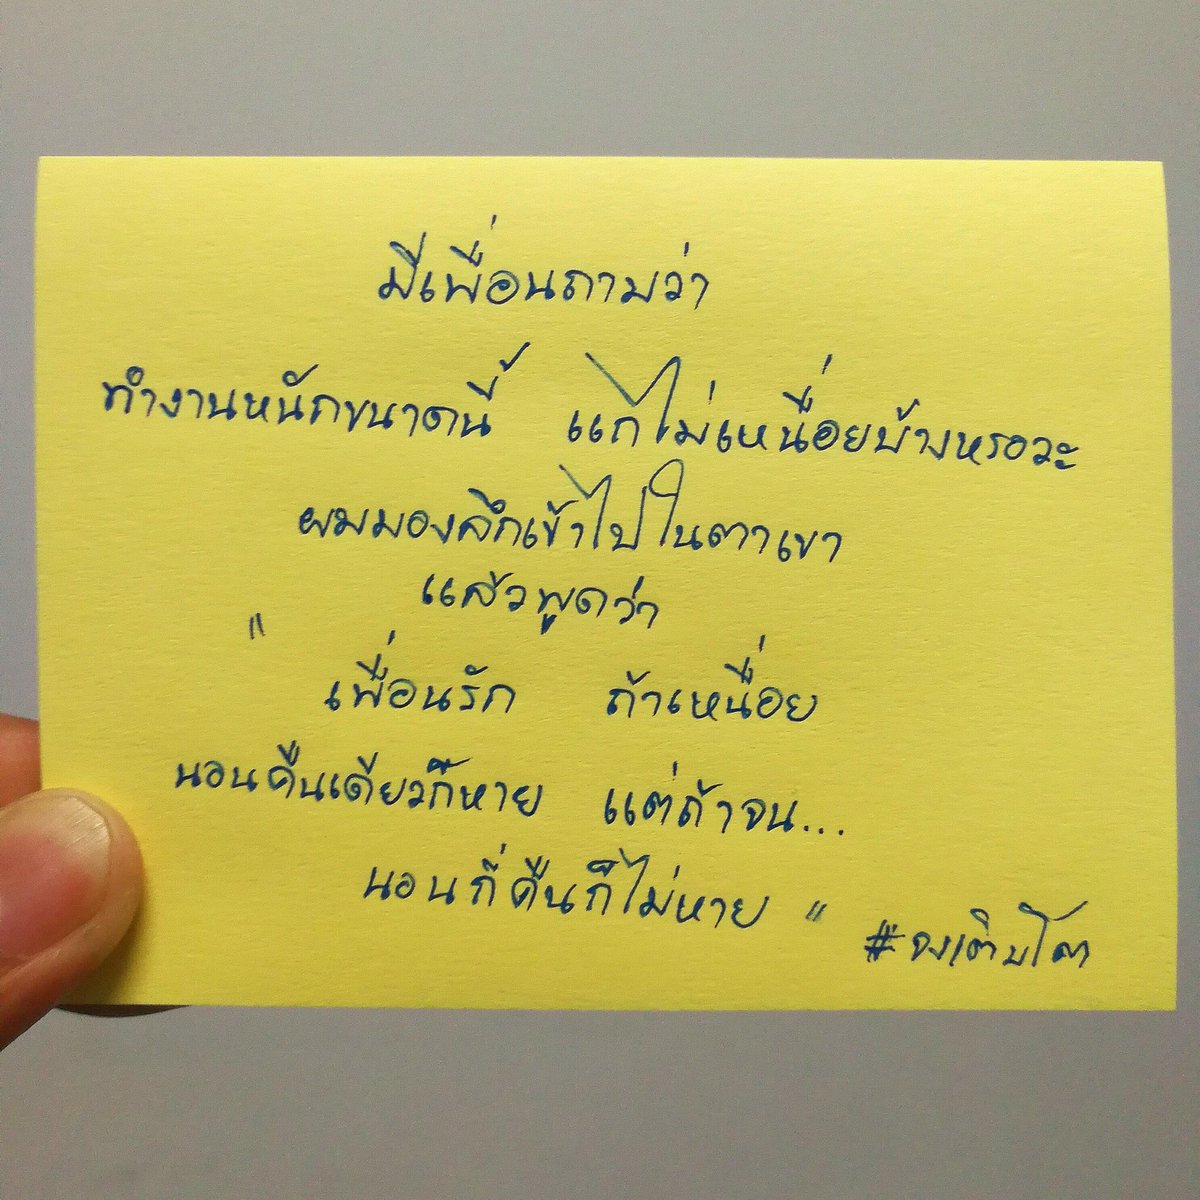 มีเพื่อนถามว่า
ทำงานหนักขนาดนี้ แกไม่เหนื่อยบ้างหรอวะ
ผมมองลึกเข้าไปในตาเขา
แล้วพูดว่า
"
เพื่อนรัก ถ้าเหนื่อย
นอนคืนเดียวก็หาย แต่ถ้าจน...
นอนกี่คืนก็ไม่หาย "
#จงเติบโต